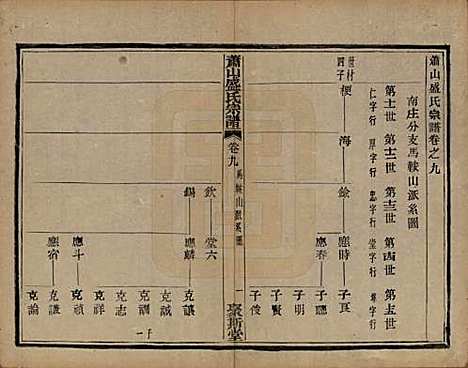 蕭山盛氏宗譜卷之九
南庄分支馬鞍山派系圖
第十一世 第十二世 第十三世 第十四世 第十五世
仁字行 厚字行 忠字行 堂字行 尊字行
梗 海 餘 應時 子良
四子
應春 子聰
子明
子賢
子俊
蕭山盛氏宗譜 卷九 馬鞍山派系圖 一 聚斯堂
欽 堂六
錫 應麟 克讓
克誠
克志
克祥
應斗 克禎
應宿 克諭